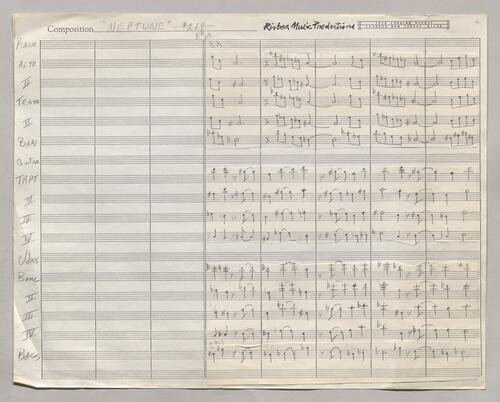 Composition "NEPTUNE"
Rivbea Music Productions
PIANO
ALTO
II
TENOR
II
BARI
GUITAR
TRPT
II
III
IV
BONE
II
III
IV
BASS